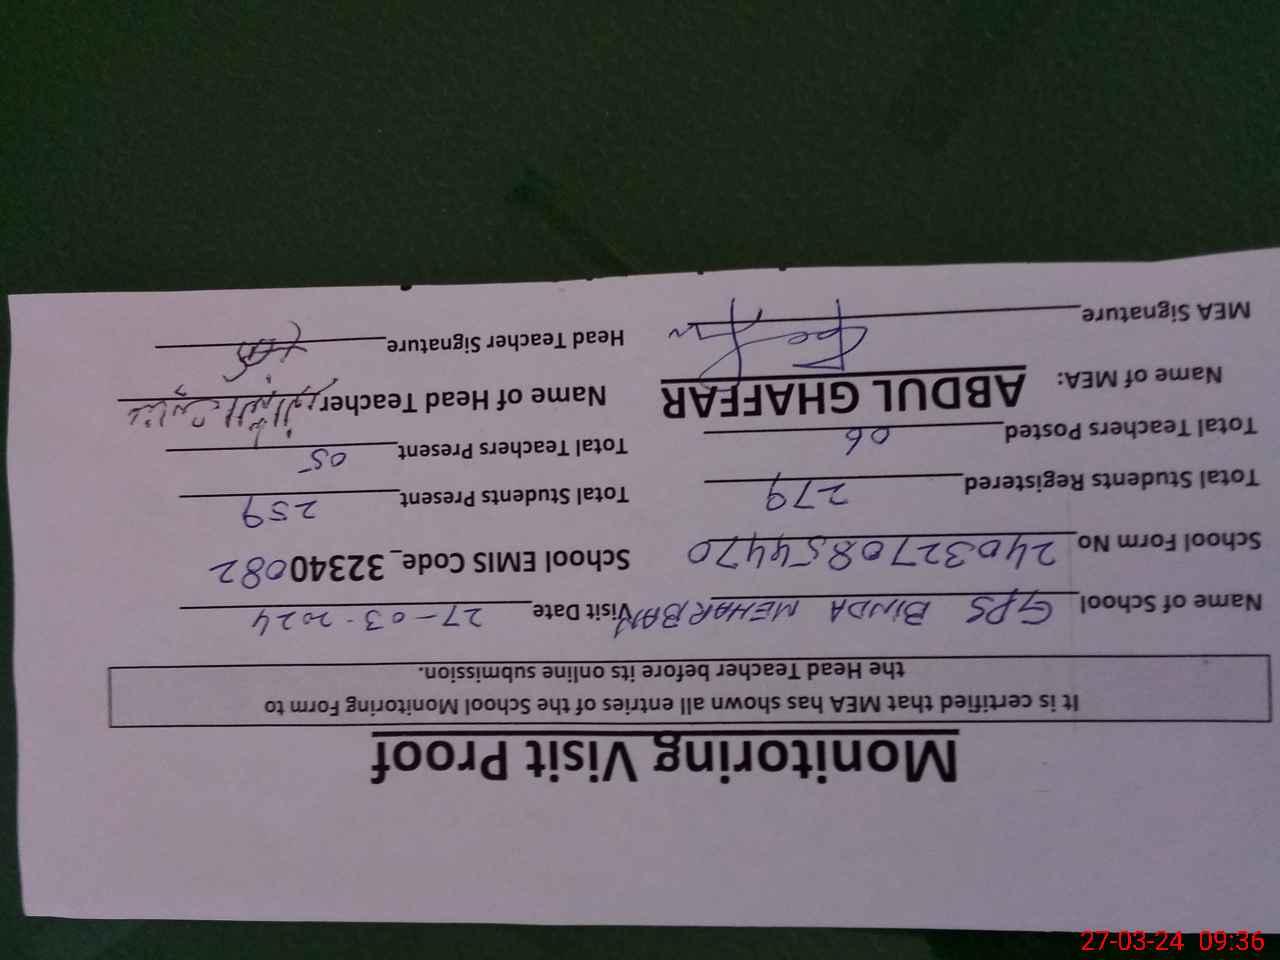 Monitoring Visit Proof
It is certified that MEA has shown all entries of the School Monitoring Form to
the Head Teacher before its online submission.
Name of School GPS BINDA MEHARBAN Visit Date 27-03-2024
School Form No 2403270854470 School EMIS Code_32340082
Total Students Registered 279 Total Students Present 259
Total Teachers Posted 06 Total Teachers Present 05
Name of MEA: ABDUL GHAFFAR Name of Head Teacher
MEA Signature Head Teacher Signature
27-03-24 09:36